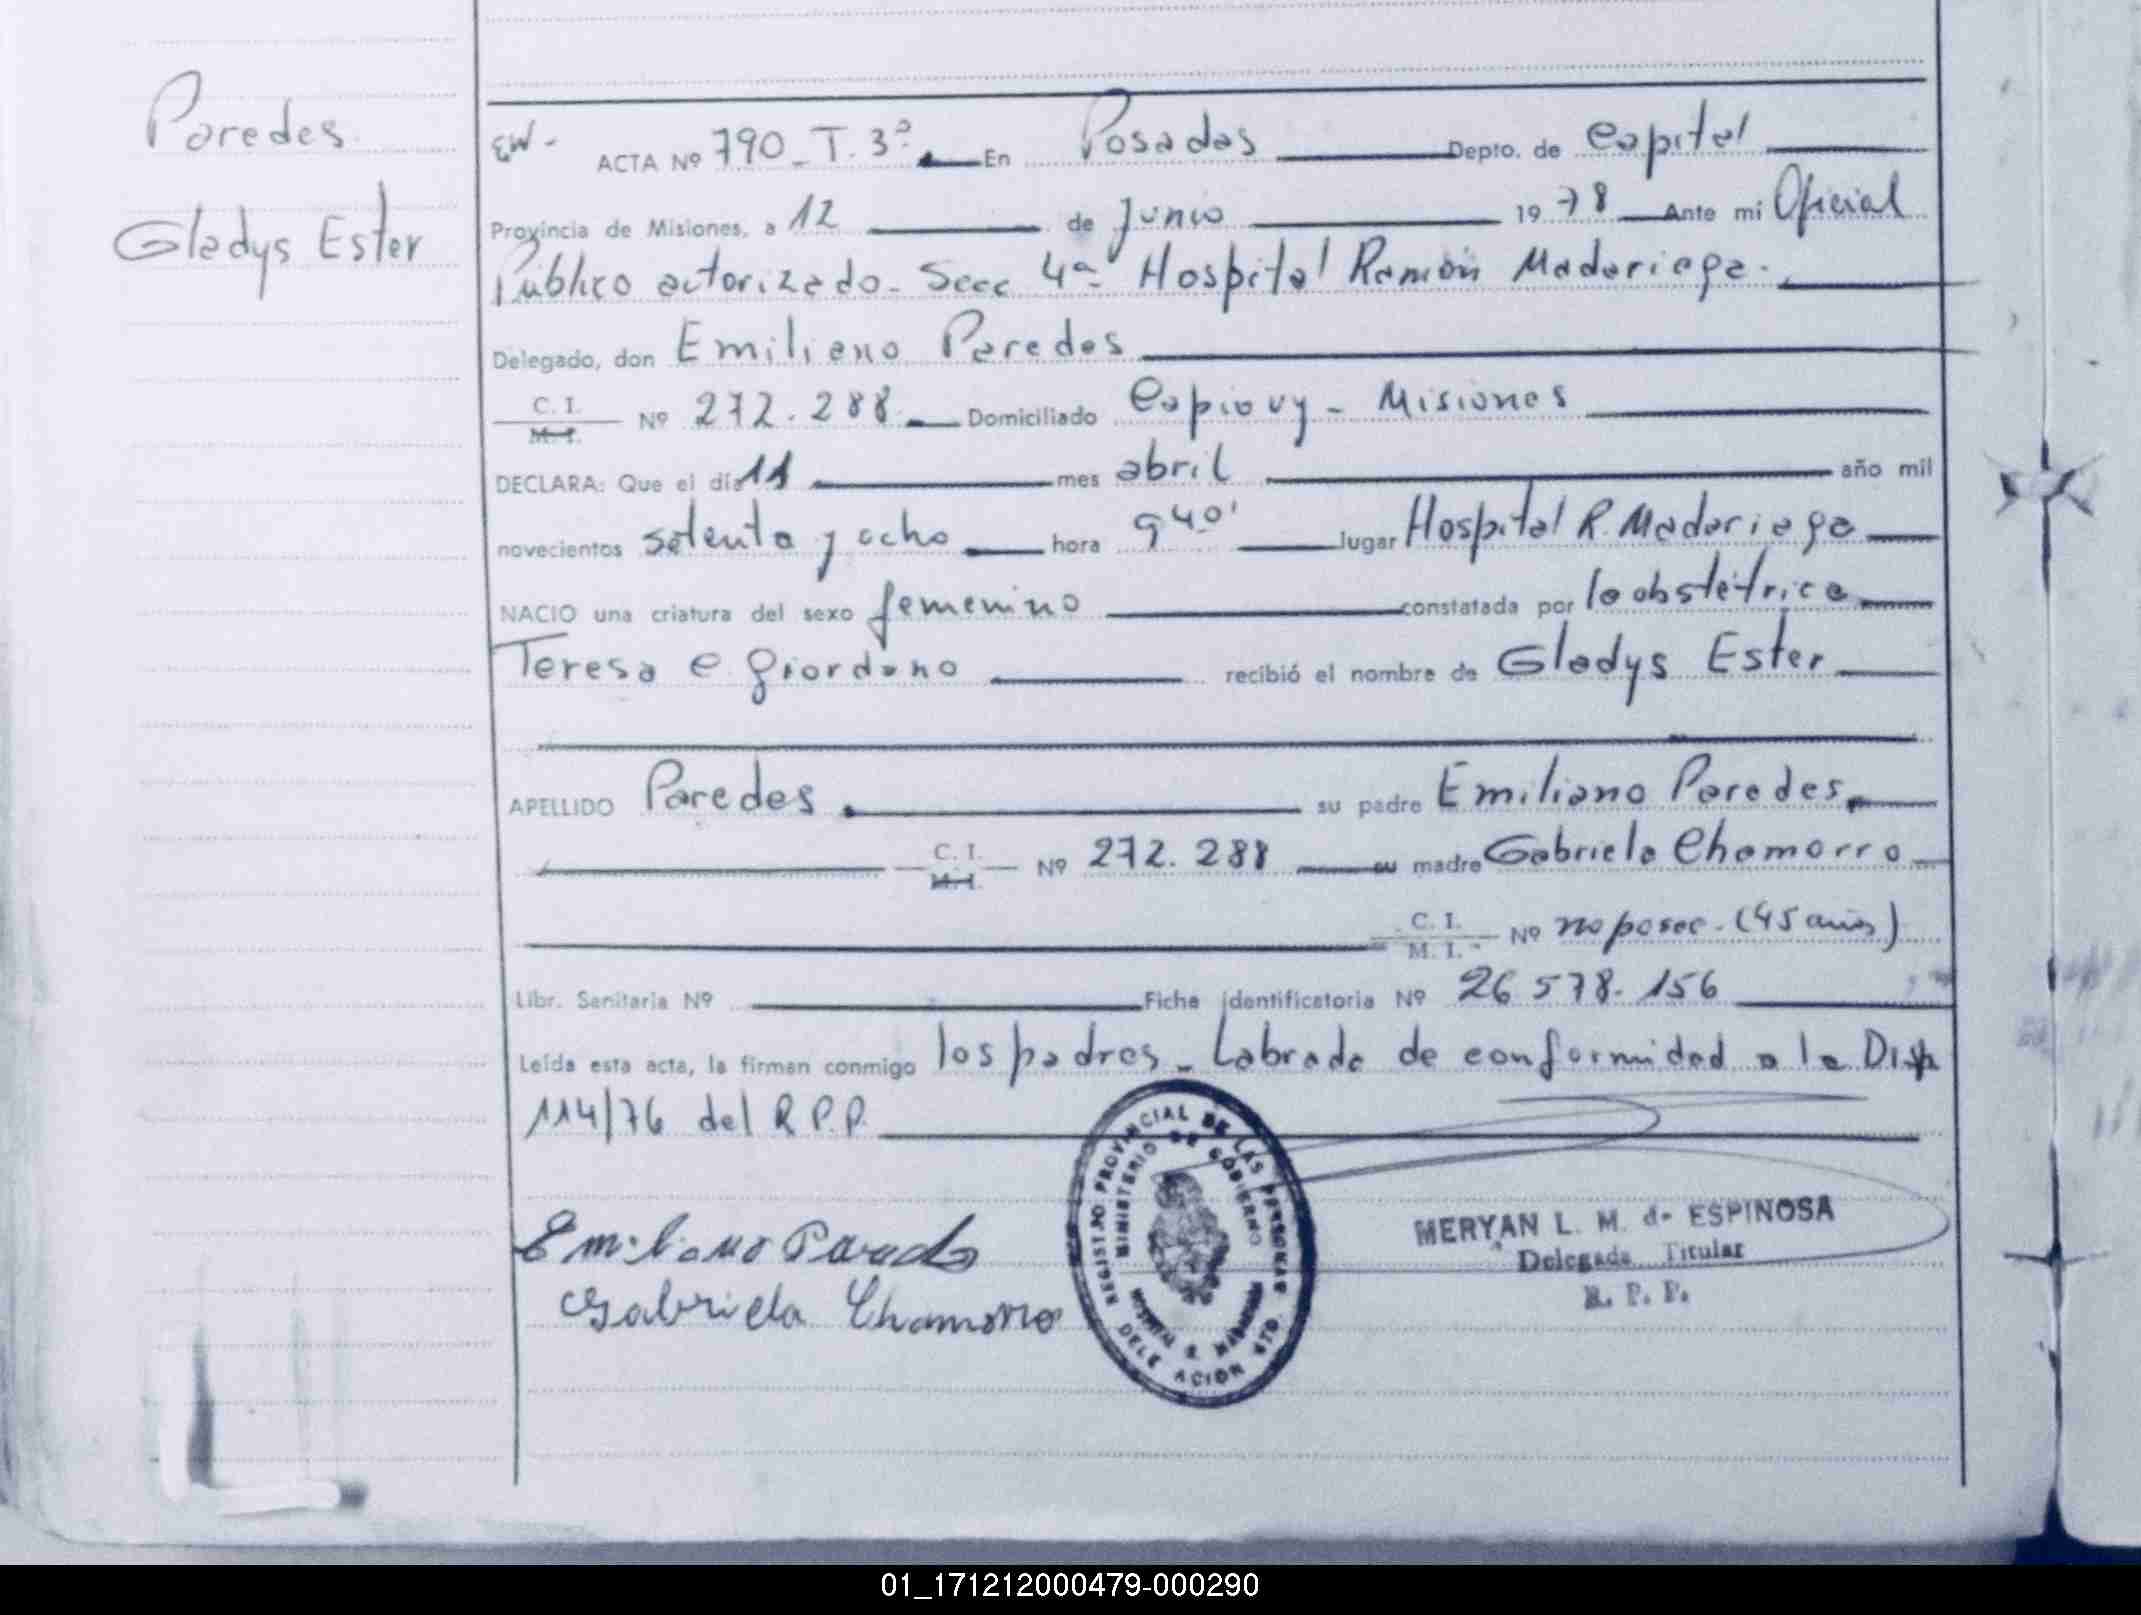 Paredes
Gladys Ester
EW-
ACTA Nº 790 _ T. 3º. En Posadas Depto. de Capital
Provincia de Misiones, a 12 de Junio 1978 Ante mi Oficial
Público autorizado - Secc 4ª Hospital Ramón Madariaga.
Delegado, don Emiliano Paredes
C. I. M. I. Nº 272.288 Domiciliado Capiovy - Misiones
DECLARA: Que el día 11 mes abril año mil
novecientos setenta y ocho hora 9 40' lugar Hospital R. Madariaga
NACIO una criatura del sexo femenino constatada por la obstétrica
Teresa C. Giordano recibió el nombre de Gladys Ester
APELLIDO Paredes su padre Emiliano Paredes
C. I. M. I. Nº 272.288 su madre Gabriela Chamorro
C. I. M. I. Nº no posee - (45 años)
Libr. Sanitaria Nº Ficha identificatoria Nº 26 578.156
Leída esta acta, la firman conmigo los padres - Labrada de conformidad a la Disp
114/76 del R.P.P.
REGISTRO PROVINCIAL DE LAS PERSONAS
MINISTERIO DE GOBIERNO
DELEGACION
Emiliano Paredes
Gabriela Chamorro
MERYAN L. M. de ESPINOSA
Delegada Titular
R. P. P.
01_171212000479-000290